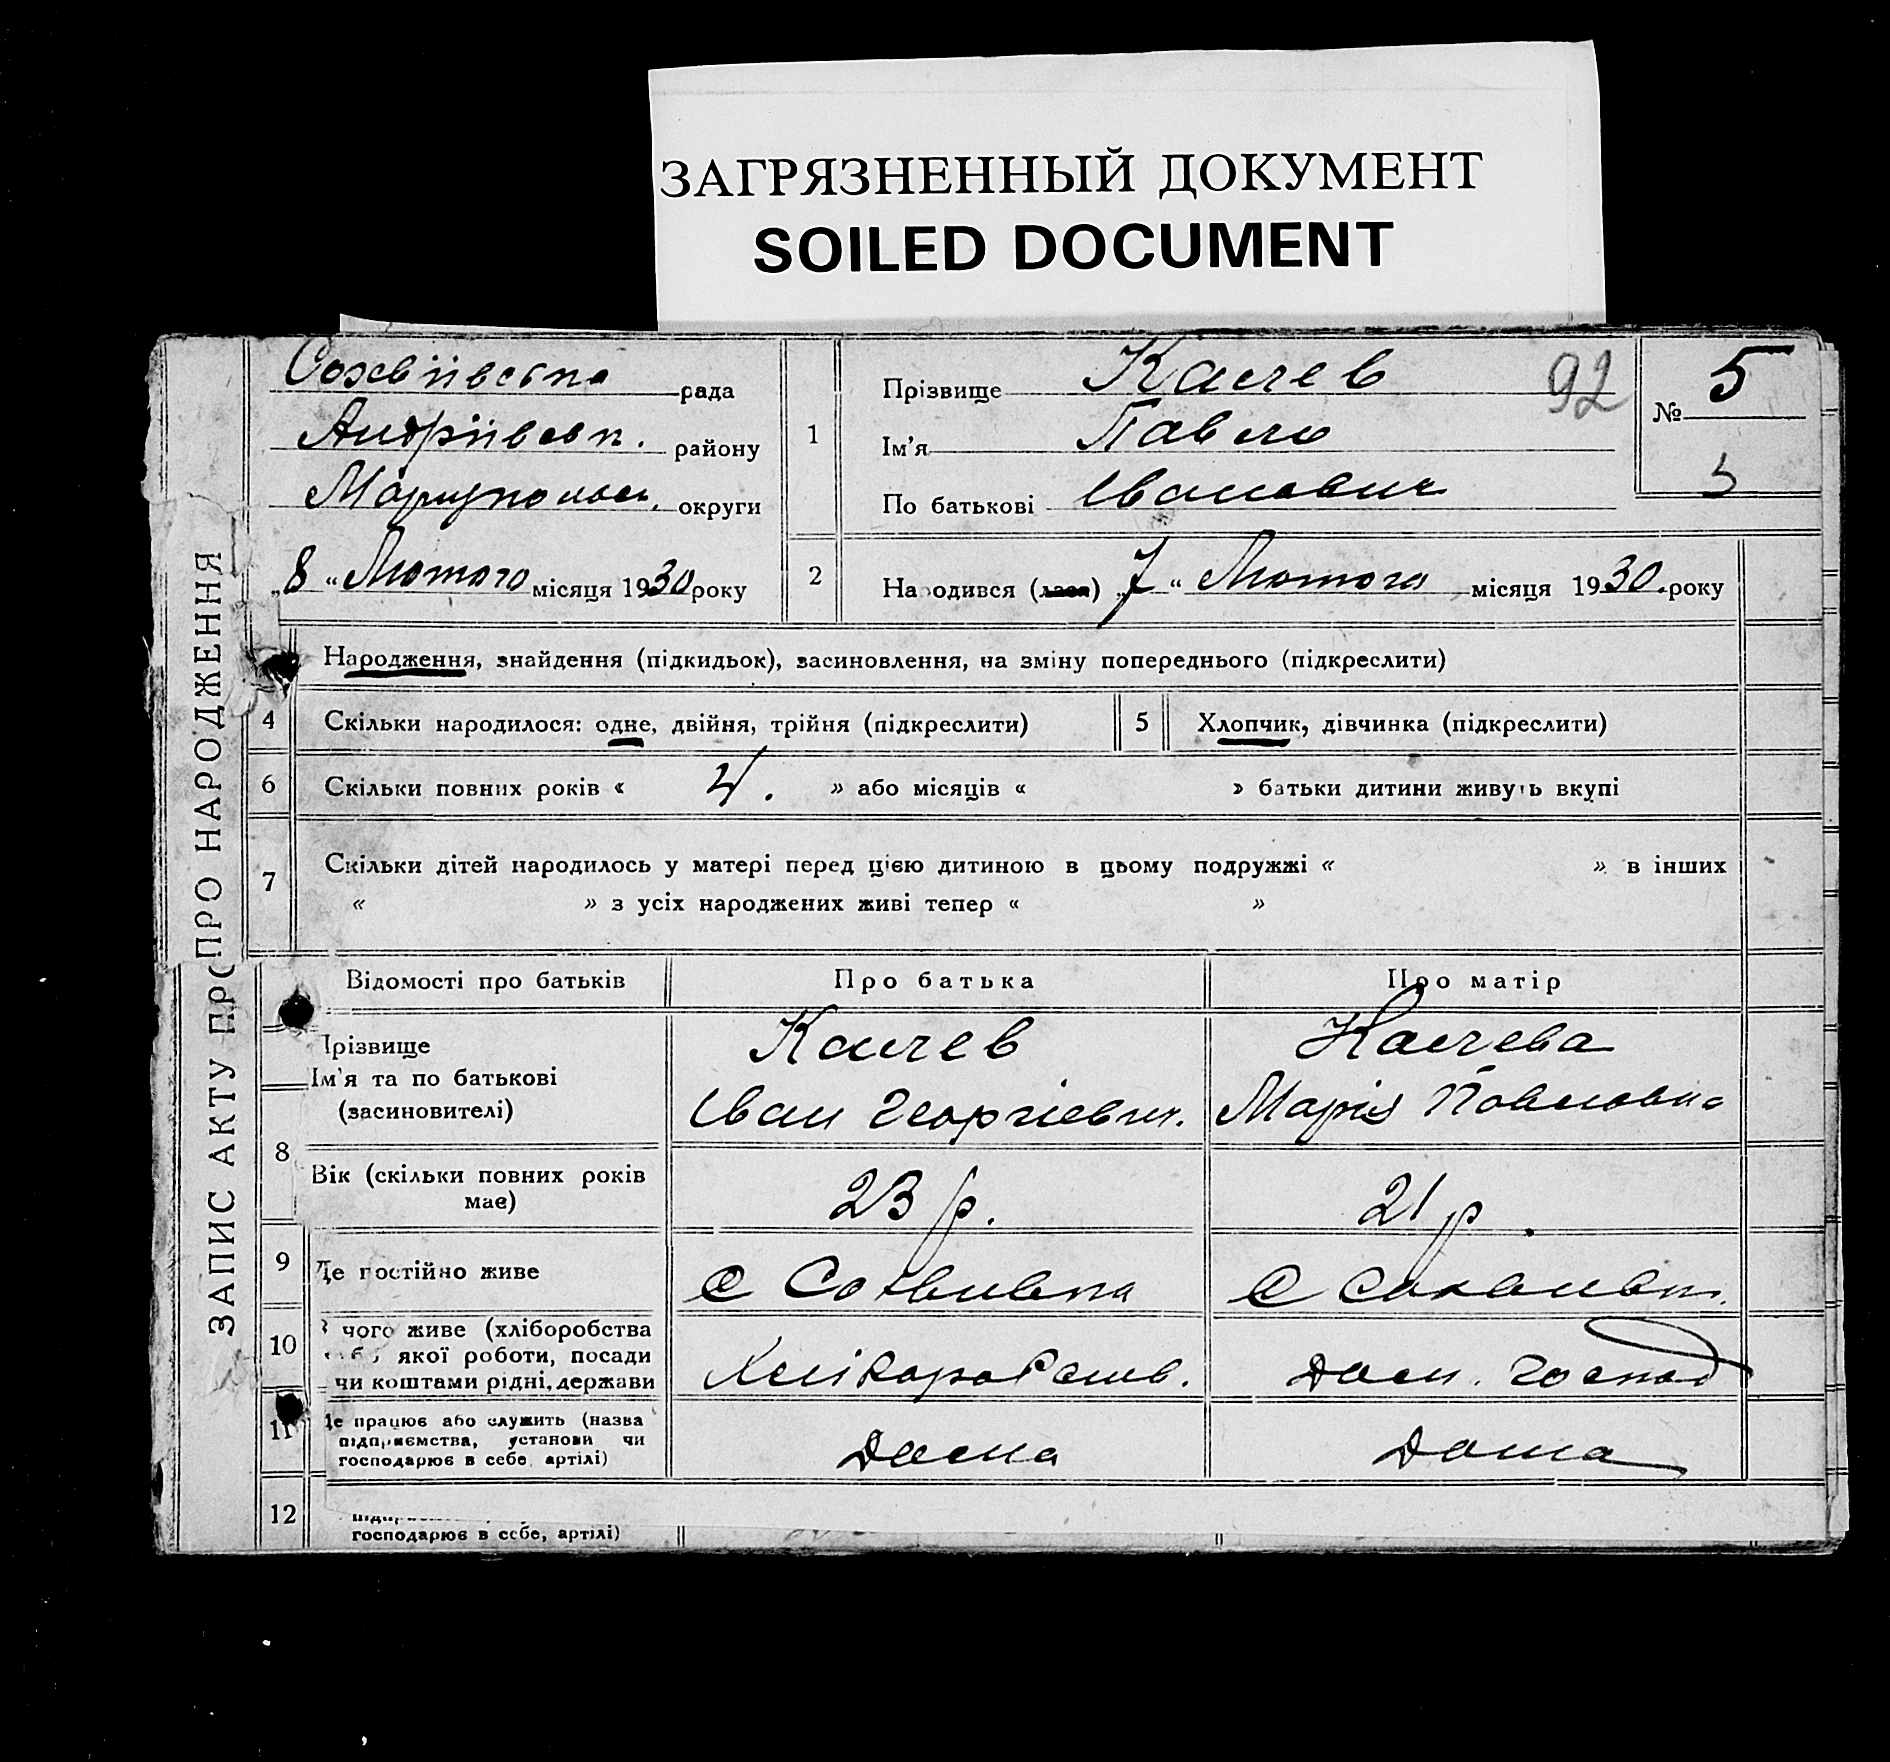 ЗАГРЯЗНЕННЫЙ ДОКУМЕНТ
SOILED DOCUMENT
ЗАПИС АКТУ ПРО НАРОДЖЕННЯ
рада
Андріївськ. району
Маріупольськ. округи
„8“ Лютого місяця 1930 року
1
Прізвище Калчев
Ім'я Павло
По батькові Іванович
92
№ 5
5
2
Народився (лася) „7“ Лютого місяця 1930. року
Народження, знайдення (підкидьок), засиновлення, на зміну попереднього (підкреслити)
4 Скільки народилося: одне, двійня, трійня (підкреслити)
5 Хлопчик, дівчинка (підкреслити)
6 Скільки повних років « 4. » або місяців « » батьки дитини живуть вкупі
7 Скільки дітей народилось у матері перед цією дитиною в цьому подружжі « » в інших
« » з усіх народжених живі тепер « »
Відомості про батьків Про батька Про матір
8
Прізвище Калчев Калчева
Ім'я та по батькові Іван Георгієвич. Марія Павловна
(засиновителі)
Вік (скільки повних років має) 23 р. 21 р.
9 Де постійно живе с
10 З чого живе (хліборобства
або якої роботи, посади
чи коштами рідні, держави
Дом. господ
11 Де працює або служить (назва
підприємства, установи чи
господарює в себе, артілі)
Дома Дома
12
господарює в себе, артілі)